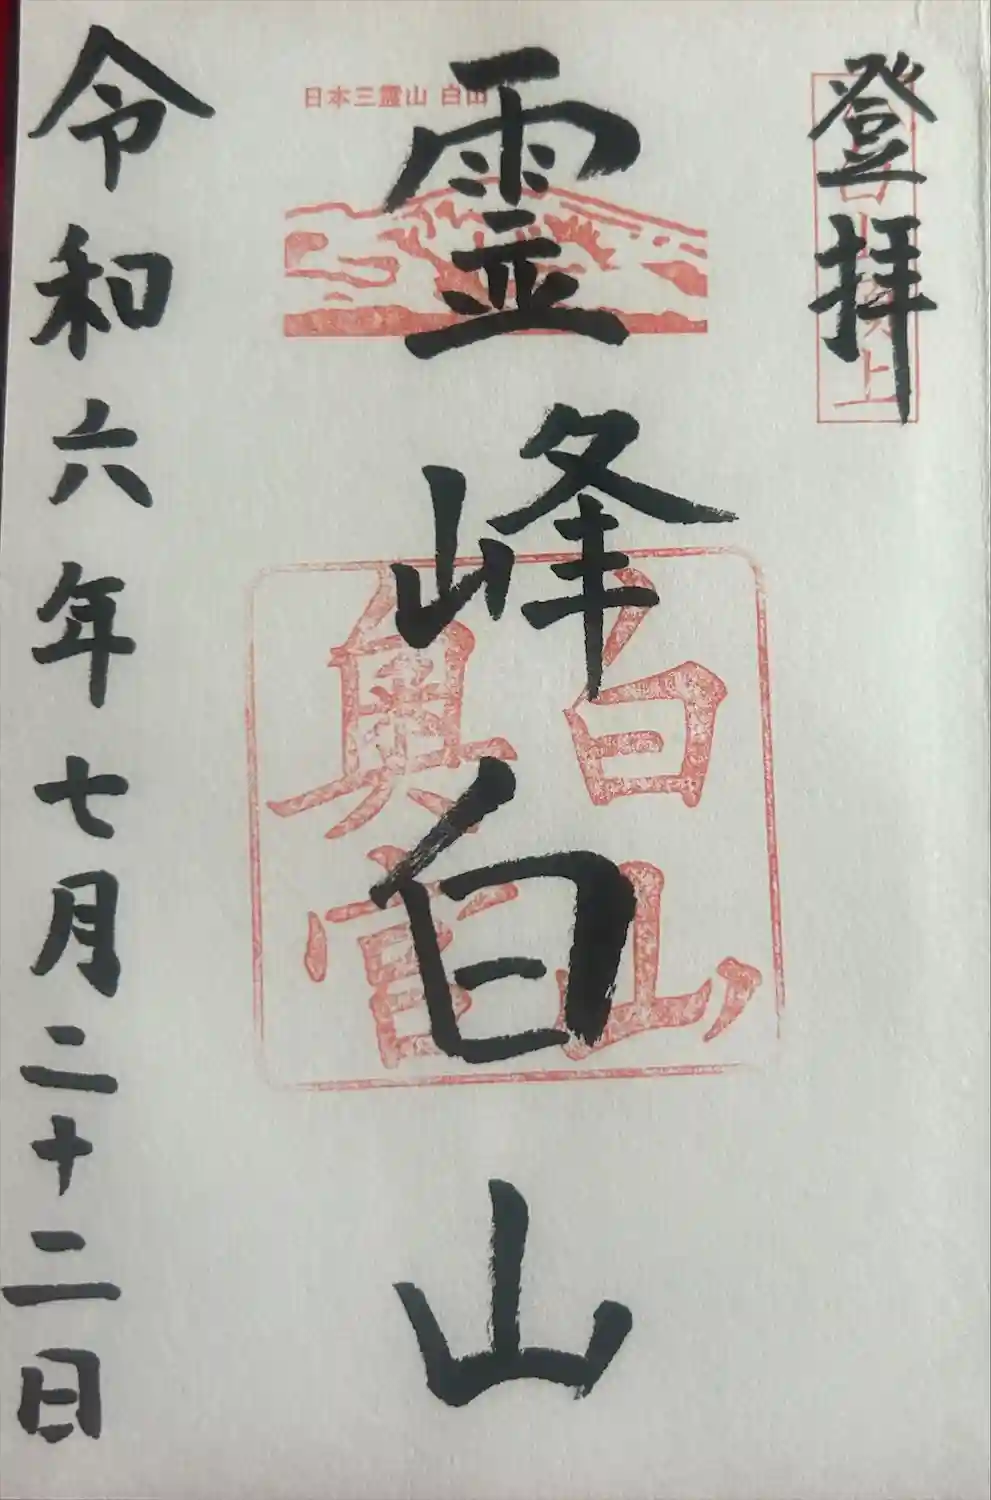 登拝
日本三霊山 白山
霊峰白山
白山
奥宮
令和六年七月二十二日